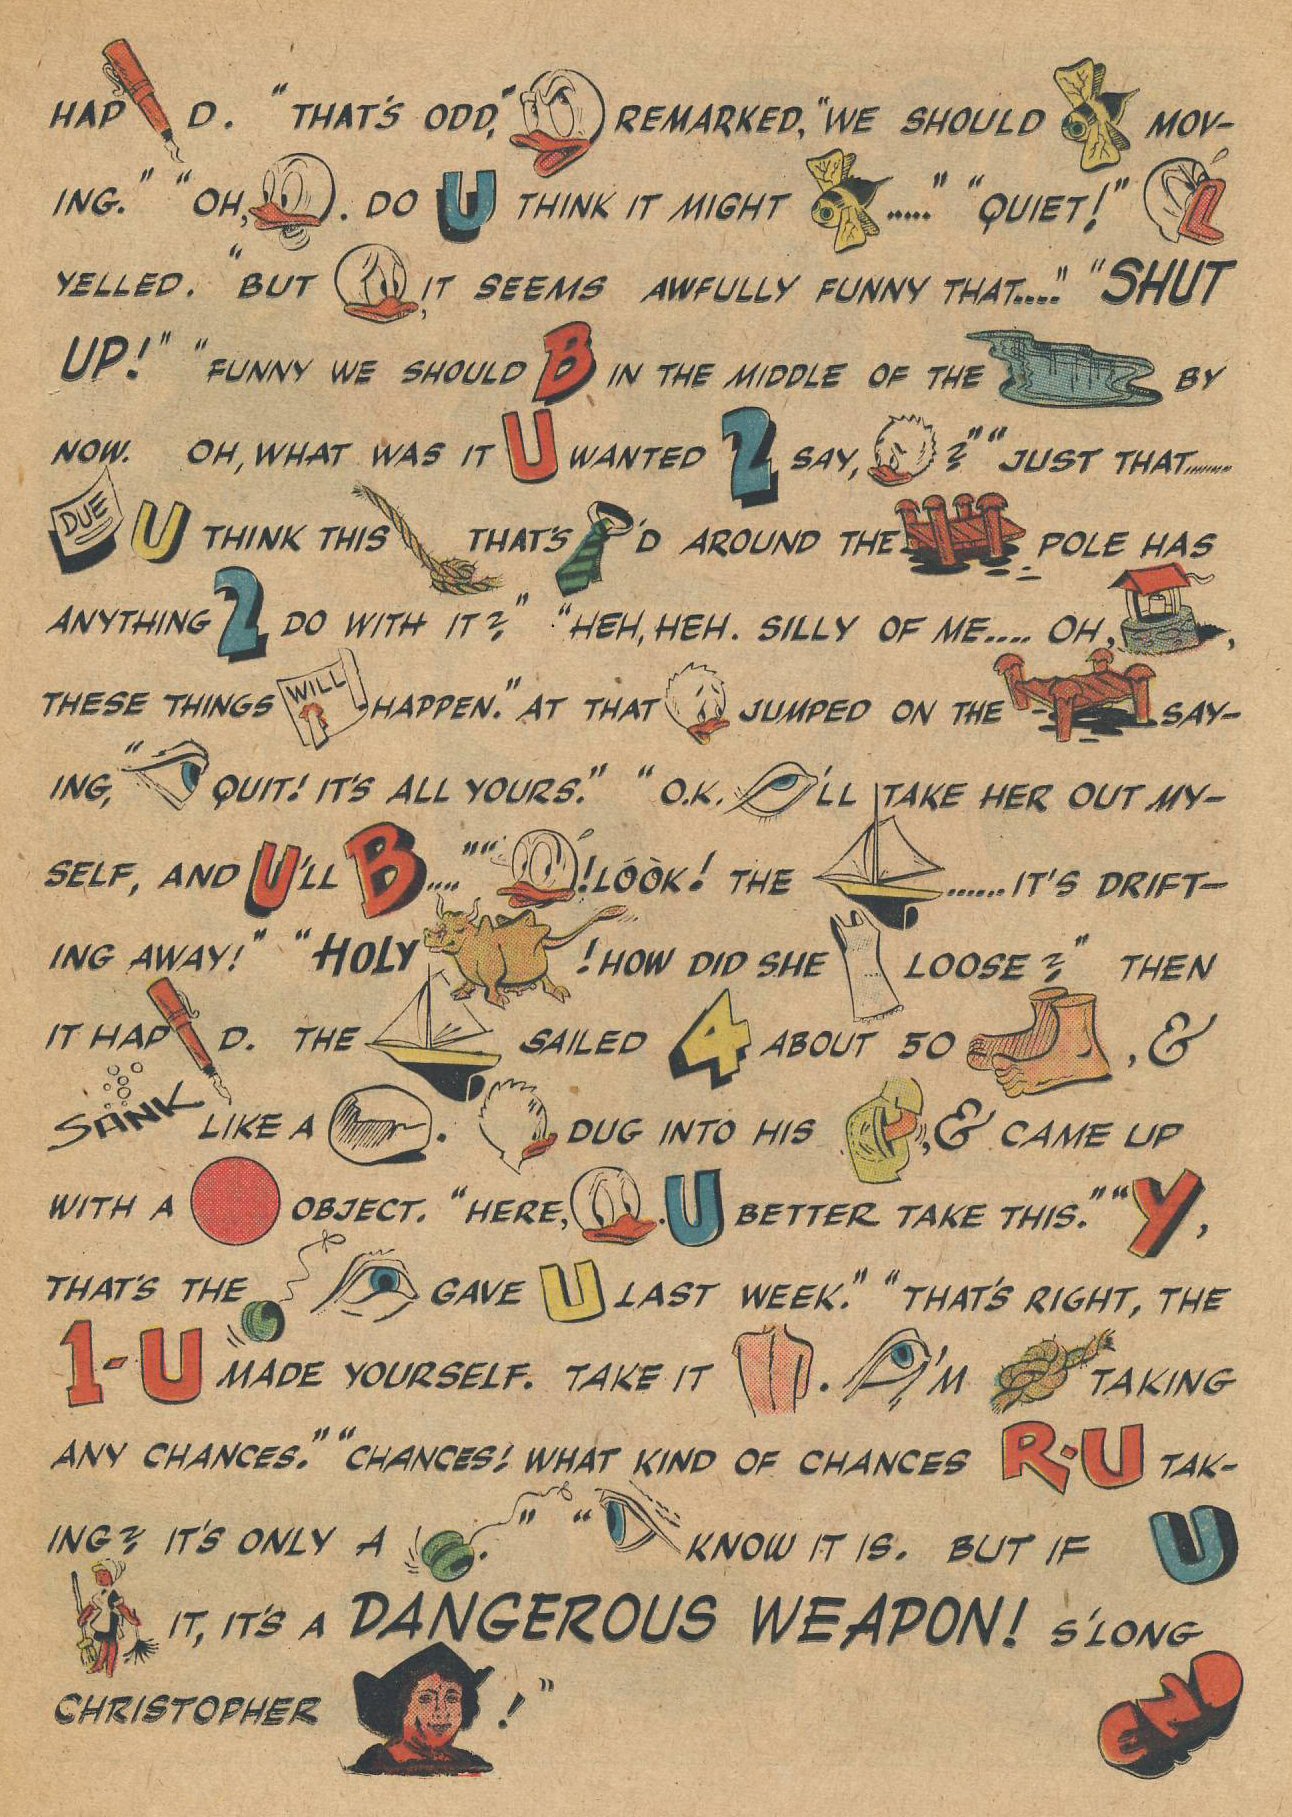 HAP D. "THAT'S ODD," REMARKED, "WE SHOULD MOV-
ING." "OH, . DO U THINK IT MIGHT ....." "QUIET!"
YELLED. "BUT , IT SEEMS AWFULLY FUNNY THAT...." "SHUT
UP!" "FUNNY WE SHOULD B IN THE MIDDLE OF THE BY
NOW. OH, WHAT WAS IT U WANTED 2 SAY, ?" "JUST THAT.......
DUE U THINK THIS THAT'S 'D AROUND THE POLE HAS
ANYTHING 2 DO WITH IT?" "HEH, HEH. SILLY OF ME.... OH, ,
THESE THINGS WILL HAPPEN." AT THAT JUMPED ON THE SAY-
ING, " QUIT! IT'S ALL YOURS." "O.K. 'LL TAKE HER OUT MY-
SELF, AND U'LL B...." " ! LOOK! THE ......IT'S DRIFT-
ING AWAY!" "HOLY ! HOW DID SHE LOOSE?" THEN
IT HAP D. THE SAILED 4 ABOUT 50 , &
SANK LIKE A . DUG INTO HIS , & CAME UP
WITH A OBJECT. "HERE, . U BETTER TAKE THIS." "Y,
THAT'S THE GAVE U LAST WEEK." "THAT'S RIGHT, THE
1-U MADE YOURSELF. TAKE IT . 'M TAKING
ANY CHANCES." "CHANCES! WHAT KIND OF CHANCES R-U TAK-
ING? IT'S ONLY A ." " KNOW IT IS. BUT IF U
IT, IT'S A DANGEROUS WEAPON! S'LONG
CHRISTOPHER !"
END